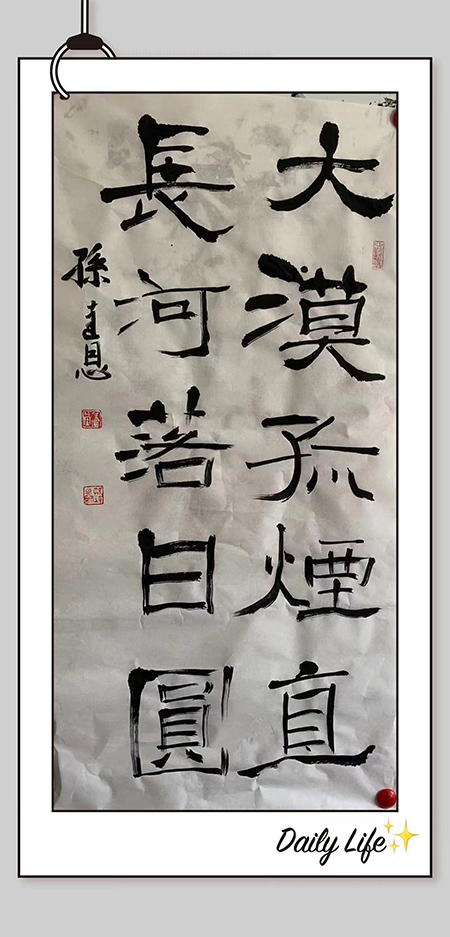 大漠孤煙直
長河落日圓
孫建恩
Daily Life